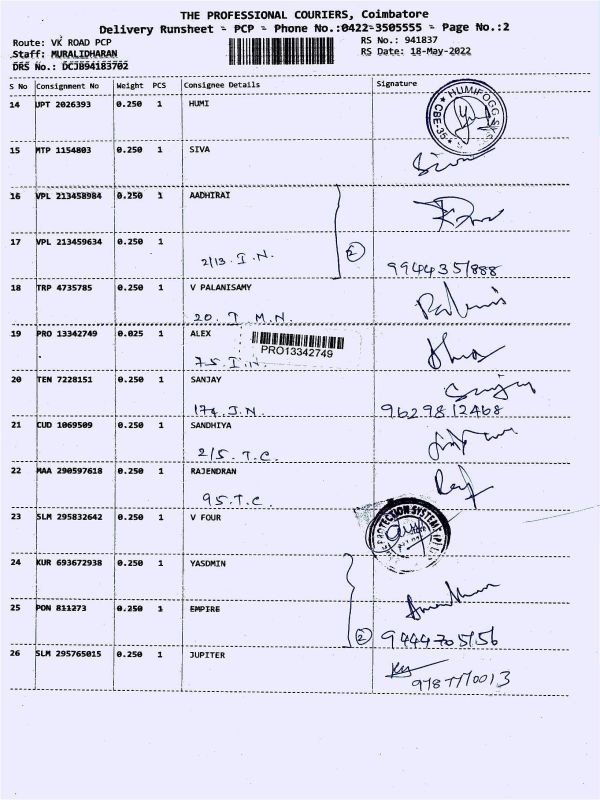 THE PROFESSIONAL COURIERS, Coimbatore
Delivery Runsheet - PCP - Phone No.:0422-3505555 - Page No.:2
Route: VK ROAD PCP
RS No.: 941837
Staff: MURALIDHARAN
RS Date: 18-May-2022
DRS No.: DCJB94183702
S No Consignment No Weight PCS Consignee Details Signature
14 UPT 2026393 0.250 1 HUMI
HUMIFOGG SYS
CBE-35
15 MTP 1154803 0.250 1 SIVA
Siva
16 VPL 213458984 0.250 1 AADHIRAI
17 VPL 213459634 0.250 1
2/13. I.N. 2
9944351888
18 TRP 4735785 0.250 1 V PALANISAMY
20. T M.N.
19 PRO 13342749 0.025 1 ALEX
PRO13342749
75. I.N.
20 TEN 7228151 0.250 1 SANJAY
Sanjay
174. J.N. 9629812468
21 CUD 1069509 0.250 1 SANDHIYA
2/5. T.C.
22 MAA 290597618 0.250 1 RAJENDRAN
95.T.C.
23 SLM 295832642 0.250 1 V FOUR
PROTECTION SYSTEMS
24 KUR 693672938 0.250 1 YASDMIN
25 PON 811273 0.250 1 EMPIRE
2 9444705156
26 SLM 295765015 0.250 1 JUPITER
9787770013